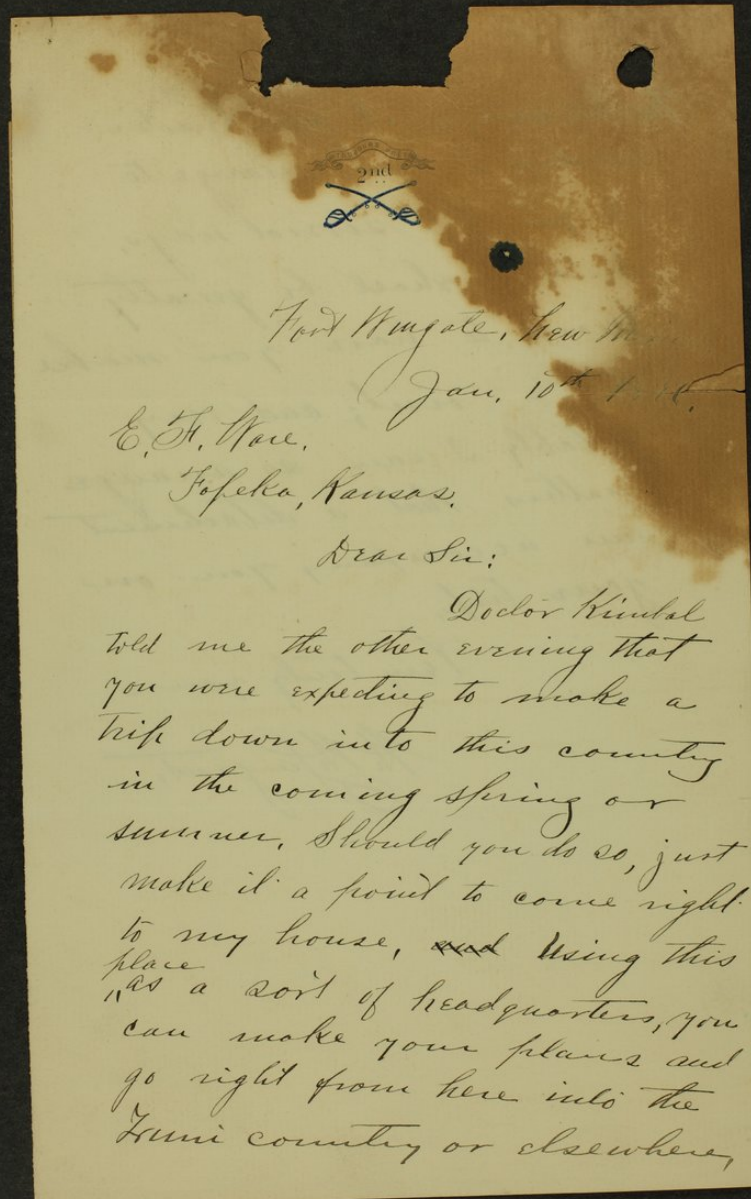 2nd
Fort Wingate, New
Jan. 10th
E. F. Ware.
Topeka, Kansas.
Dear Sir:
Doctor Kimbal
told me the other evening that
you were expecting to make a
trip down into this country
in the coming spring or
summer. Should you do so, just
make it a point to come right
to my house, and Using this
place
as a sort of headquarters, you
can make your plans and
go right from here into the
Zuni country or elsewhere,